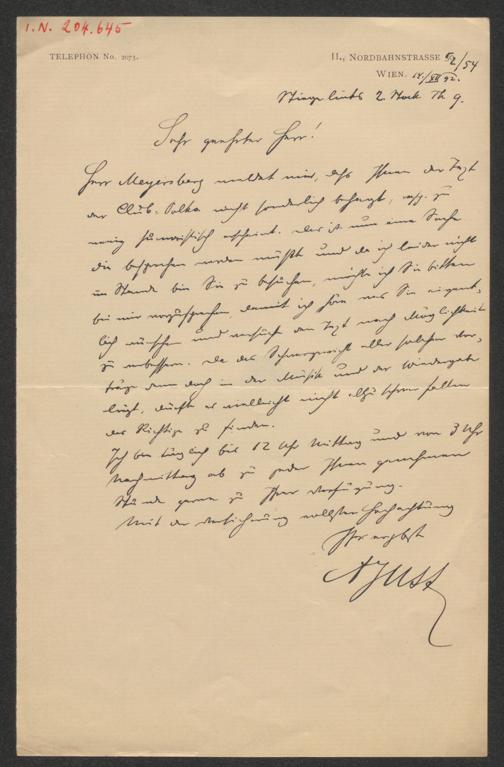 I. N. 204.645
TELEPHON No. 2073.
II., NORDBAHNSTRASSE 5/2/54
WIEN. 14/XII 92.
Stiege links 2. Stock Th 9.
Sehr geehrter Herr!
Herr Meyersberg meldet mir, daß Ihnen der Text
der Club-Polka nicht sonderlich behagt, resp. zu
wenig humoristisch erscheint. Das ist nun eine Sache
die besprochen werden müßte und da ich leider nicht
im Stande bin Sie zu besuchen, möchte ich Sie bitten
bei mir vorzusprechen, damit ich höre was Sie eigent-
lich wünschen und versuche den Text nach Möglichkeit
zu verbessern. Da das Schwergewicht aller solcher Vor-
träge denn doch in der Musik und der Wiedergabe
liegt, dürfte es vielleicht nicht allzu schwer fallen
das Richtige zu finden.
Ich bin täglich bis 12 Uhr Mittag und von 3 Uhr
Nachmittag ab zu jeder Ihnen genehmen
Stunde gerne zu Ihrer Verfügung.
Mit der Versicherung vollster Hochachtung
Ihr ergbst
AJust